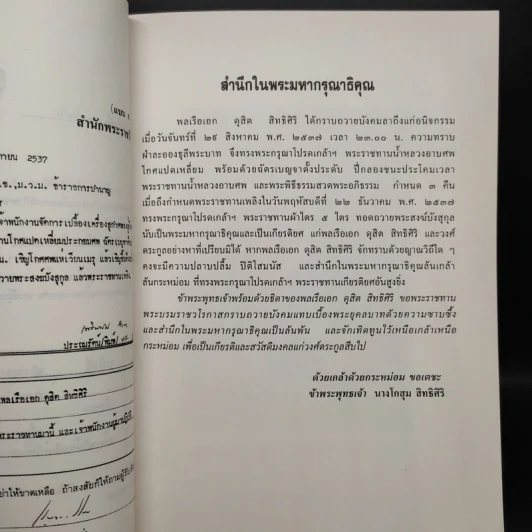 (แบบ
สำนักพระราช
ายน 2537
.ช.,ม.ว.ม. ข้าราชการบำนาญ
พลเรือเอก ดุสิต สิทธิศิริ
สำนึกในพระมหากรุณาธิคุณ
พลเรือเอก ดุสิต สิทธิศิริ ได้กราบถวายบังคมลาถึงแก่อนิจกรรม
เมื่อวันจันทร์ที่ ๒๙ สิงหาคม พ.ศ. ๒๕๓๗ เวลา ๒๓.๐๐ น. ความทราบ
ฝ่าละอองธุลีพระบาท จึงทรงพระกรุณาโปรดเกล้าฯ พระราชทานน้ำหลวงอาบศพ
โกศแปดเหลี่ยม พร้อมด้วยฉัตรเบญจาตั้งประดับ ปี่กลองชนะประโคมเวลา
พระราชทานน้ำหลวงอาบศพ และพระพิธีธรรมสวดพระอภิธรรม กำหนด ๓ คืน
เมื่อถึงกำหนดพระราชทานเพลิงในวันพฤหัสบดีที่ ๒๒ ธันวาคม พ.ศ. ๒๕๓๗
ทรงพระกรุณาโปรดเกล้าฯ พระราชทานผ้าไตร ๕ ไตร ทอดถวายพระสงฆ์บังสุกุล
นับเป็นพระมหากรุณาธิคุณ และเป็นเกียรติยศ แก่พลเรือเอก ดุสิต สิทธิศิริ และวงศ์
ตระกูลอย่างหาที่เปรียบมิได้ หากพลเรือเอก ดุสิต สิทธิศิริ จักทราบด้วยญาณวิถีใด ๆ
คงจะมีความปลาบปลื้ม ปิติโสมนัส และสำนึกในพระมหากรุณาธิคุณล้นเกล้า
ล้นกระหม่อม ที่ทรงพระกรุณาโปรดเกล้าฯ พระราชทานเกียรติยศอันสูงยิ่ง
ข้าพระพุทธเจ้าพร้อมด้วยธิดาของพลเรือเอก ดุสิต สิทธิศิริ ขอพระราชทาน
พระบรมราชวโรกาสกราบถวายบังคมแทบเบื้องพระยุคลบาทด้วยความซาบซึ้ง
และสำนึกในพระมหากรุณาธิคุณเป็นล้นพ้น และจักเทิดทูนไว้เหนือเกล้าเหนือ
กระหม่อม เพื่อเป็นเกียรติและสวัสดิมงคลแก่วงศ์ตระกูลสืบไป
ด้วยเกล้าด้วยกระหม่อม ขอเดชะ
ข้าพระพุทธเจ้า นางโกสุม สิทธิศิริ